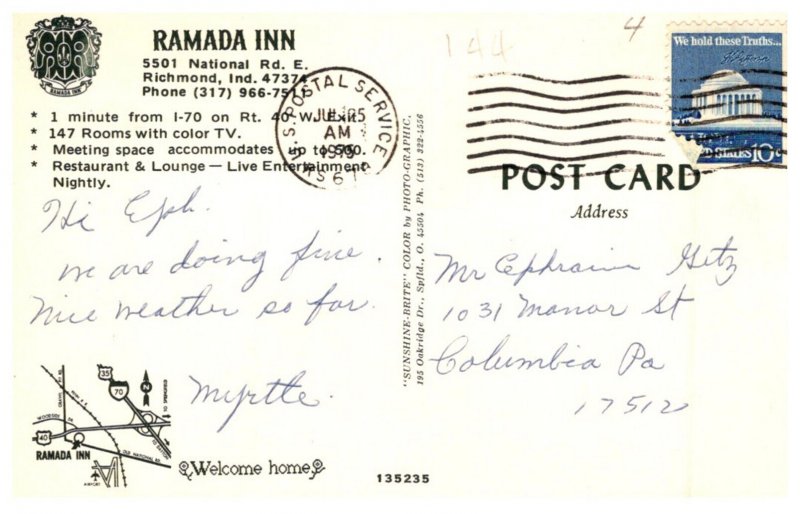 RAMADA INN
5501 National Rd. E.
Richmond, Ind. 47374
Phone (317) 966-7511
* 1 minute from I-70 on Rt. 40 W. Exit.
* 147 Rooms with color TV.
* Meeting space accommodates up to 500.
* Restaurant & Lounge — Live Entertainment
Nightly.
Hi Eph.
we are doing fine.
Nice weather so far.
Myrtle.
RAMADA INN
U.S. POSTAL SERVICE
AM
1975
144
4
We hold these Truths...
10c
POST CARD
Address
Mr Ephraim Getz
1031 Manor St
Columbia Pa
17512
"SUNSHINE-BRITE" COLOR by PHOTO-GRAPHIC,
195 Oakridge Dr., Spfld., O. 45504 Ph. (513) 322-4556
35
70
N
40
RAMADA INN
OLD NATIONAL RD.
AIRPORT
Welcome home
135235